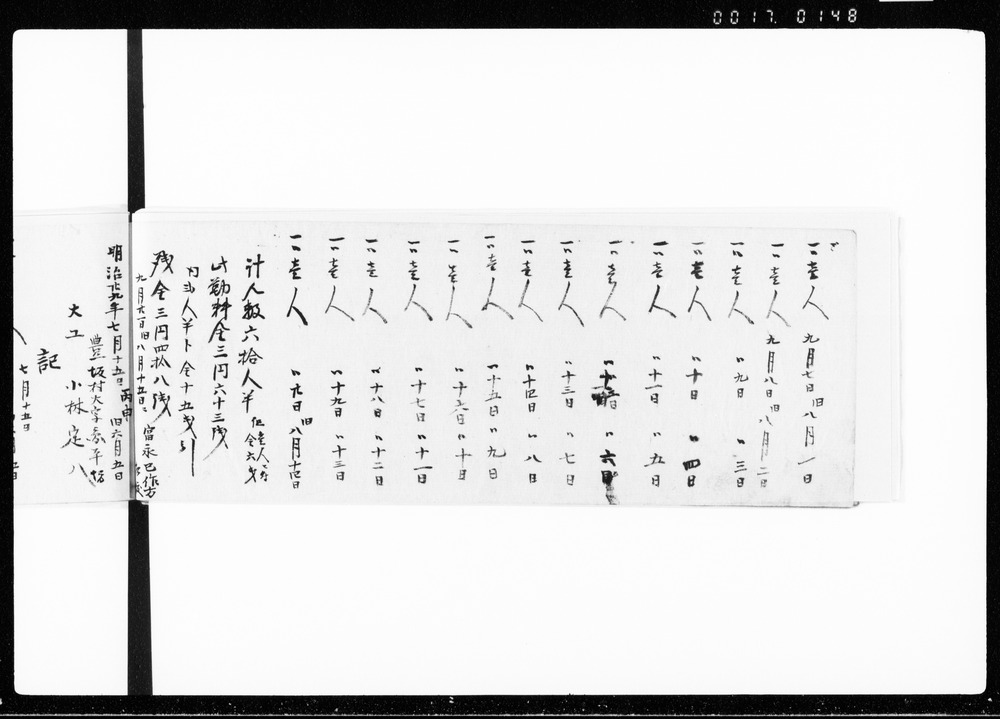 0017. 0148
一〃壱人 九月七日旧八月一日
一〃壱人 九月八日旧八月二日
一〃壱人 〃九日 〃三日
一〃壱人 〃十日 〃四日
一〃壱人 〃十一日 〃五日
一〃壱人 〃十二日 〃六日
一〃壱人 〃十三日 〃七日
一〃壱人 〃十四日 〃八日
一〃壱人 〃十五日 〃九日
一〃壱人 〃十六日 〃十日
一〃壱人 〃十七日 〃十一日
一〃壱人 〃十八日 〃十二日
一〃壱人 〃十九日 〃十三日
一〃壱人 〃廿日旧八月十四日
計人数六拾人半 但壱人ニ付金六戋
此勤料金三円六十三戋
内弐人半ト金十五戋引
残金三円四拾八戋
九月廿一日旧八月十五日 富永巳作方
明治廿九年 丙申 七月十五日 旧六月五日
豊坂村大字
大工 小林定八
記
人 七月十五日